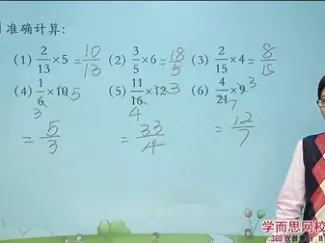 准确计算:
(1) 2/13 ×5 = 10/13 (2) 3/5 ×6 = 18/5 (3) 2/15 ×4 = 8/15
(4) 1/6 ×10 5 (5) 11/16 ×12 3 (6) 4/21 ×9 3
3 4 7
= 5/3 = 33/4 = 12/7
学而思网校